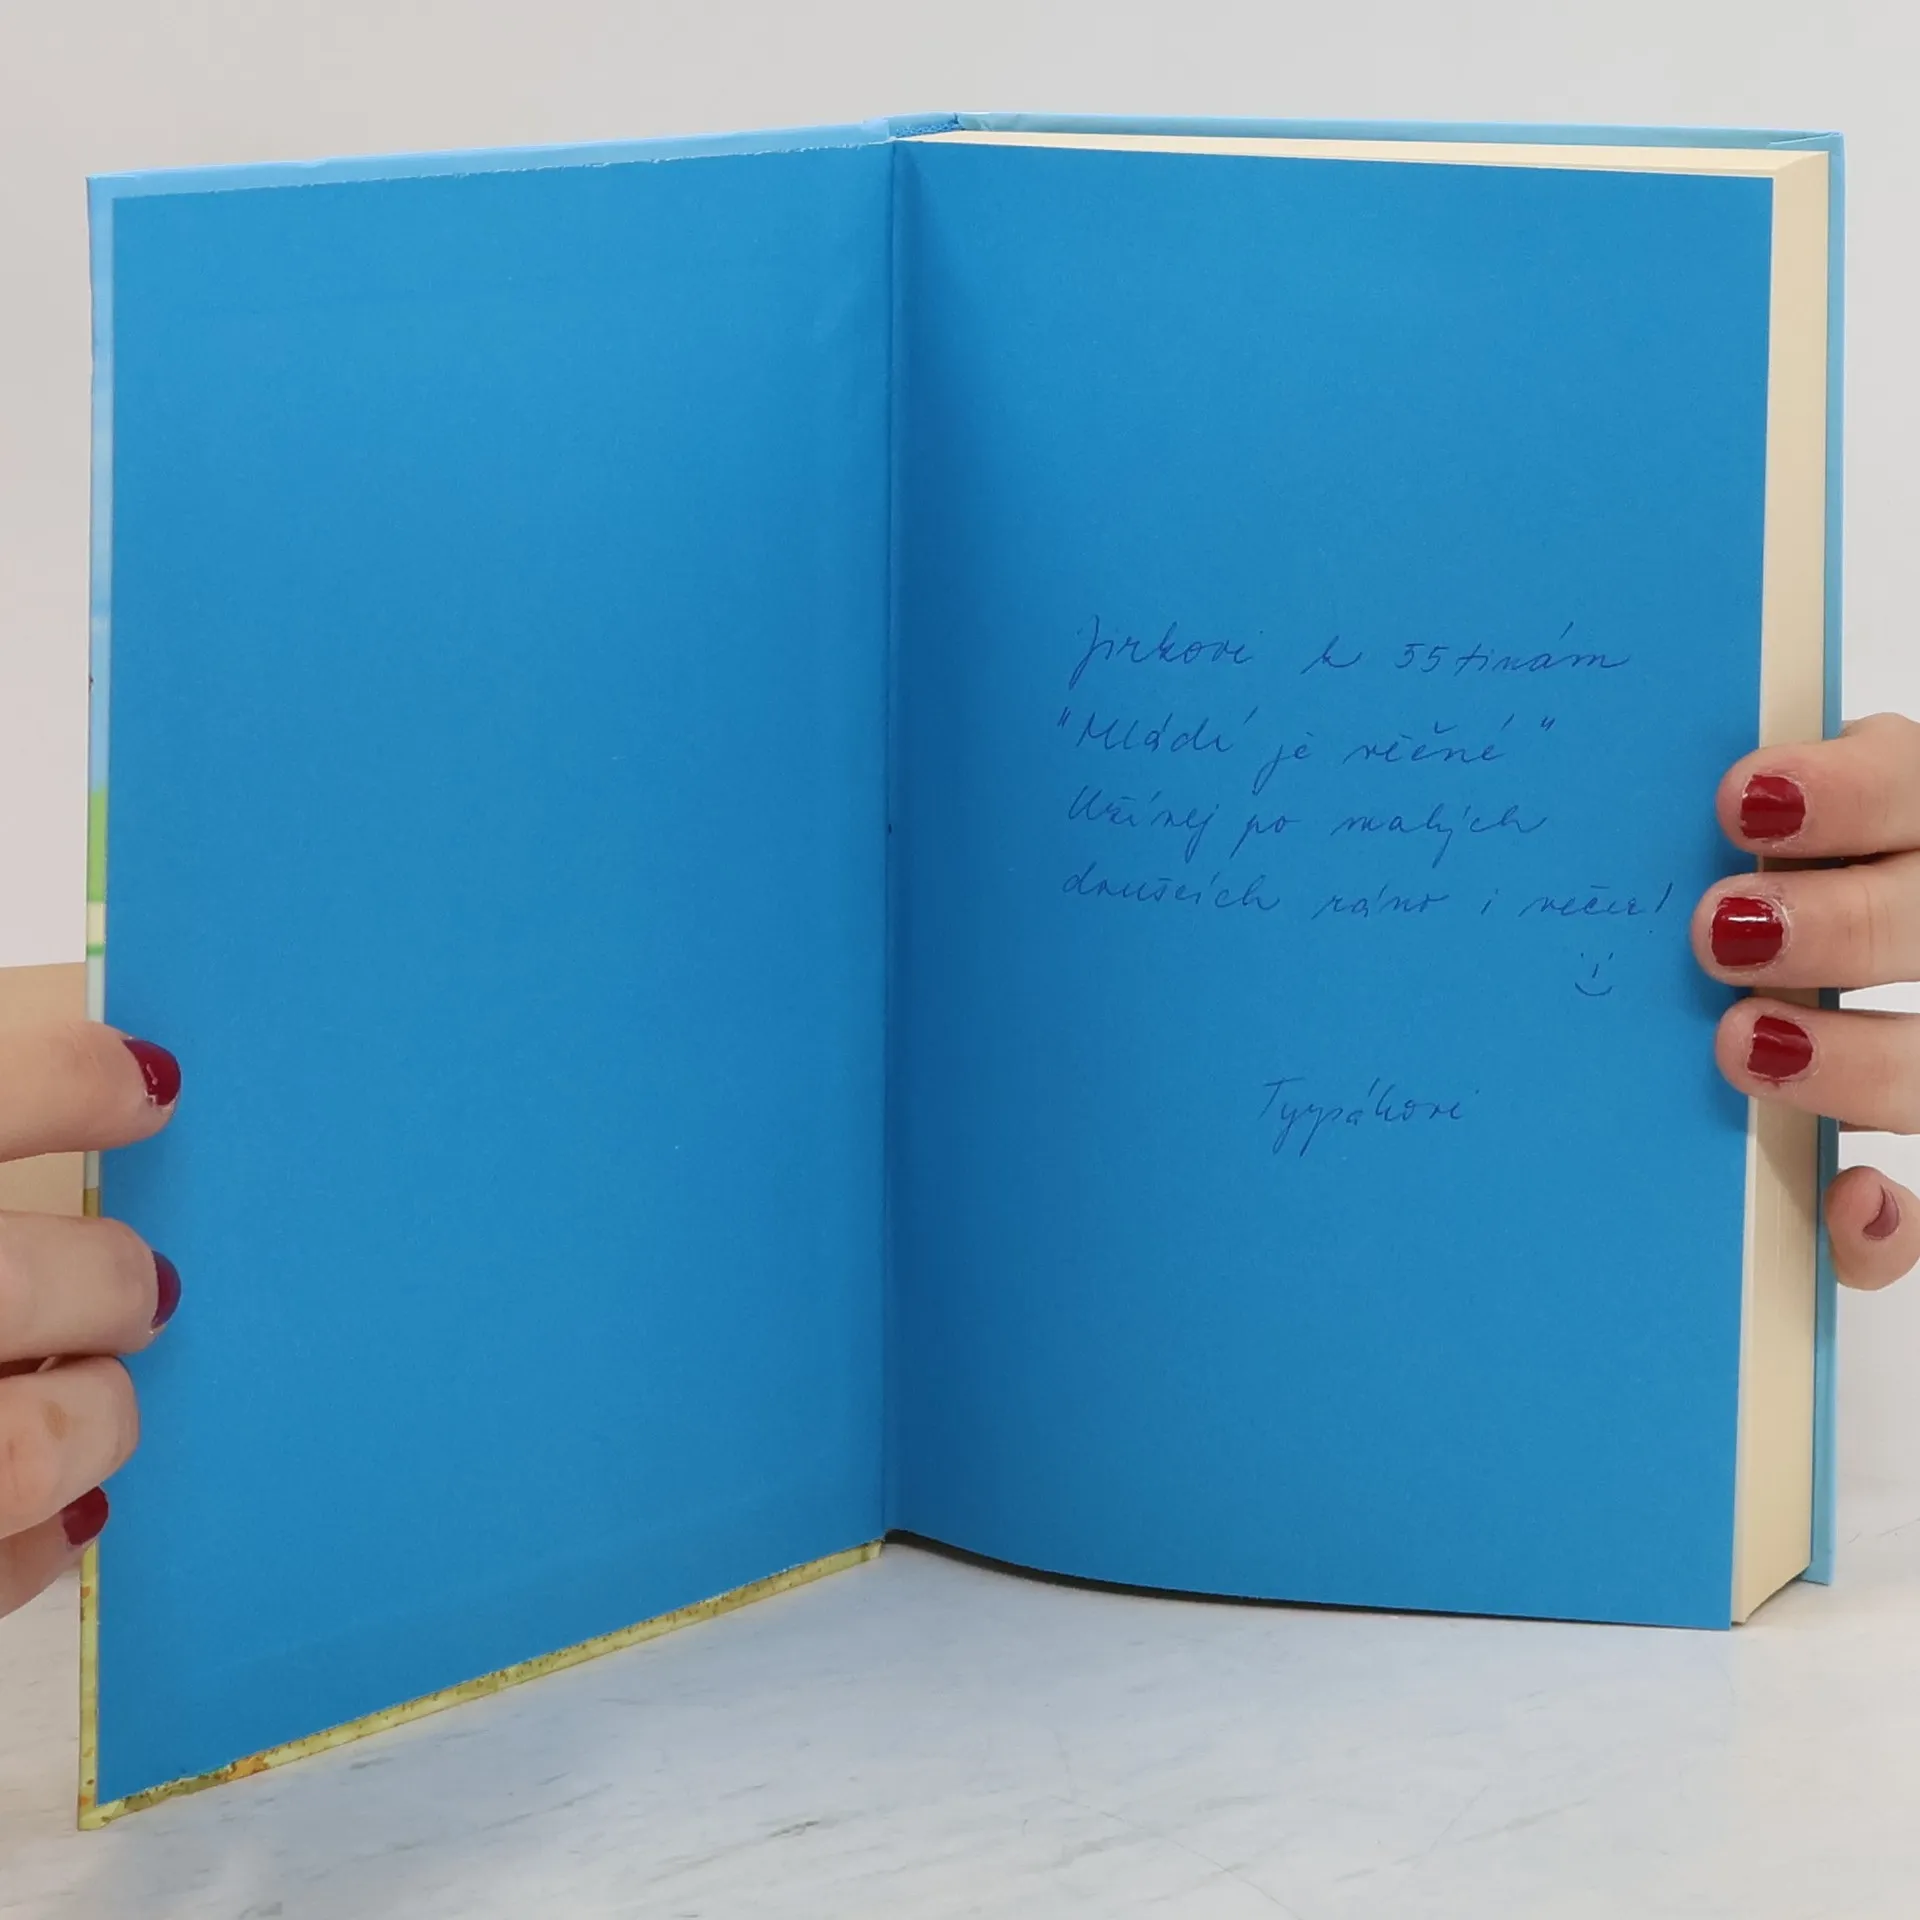 Jirkovi k 55tinám
"Mládí je věčné"
Užívej po malých
doušcích ráno i večer!